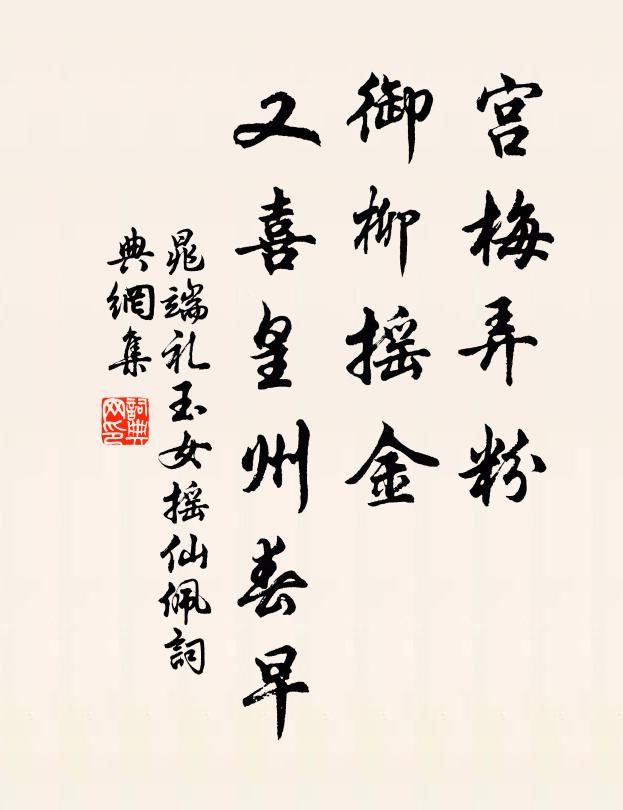 宫梅弄粉
御柳摇金
又喜皇州春早
晁端礼玉女摇仙佩詞
典網集
詞典网印